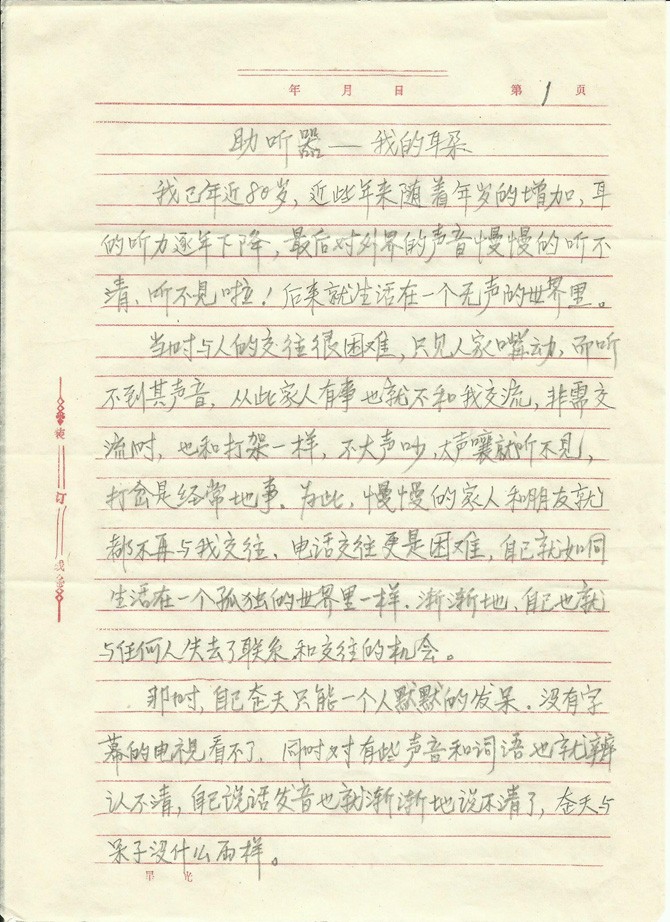 年 月 日 第 1 页
助听器——我的耳朵
我已年近80岁，近些年来随着年岁的增加，耳
的听力逐年下降，最后对外界的声音慢慢的听不
清、听不见啦！后来就生活在一个无声的世界里。
当时与人的交往很困难，只见人家嘴动，而听
不到其声音，从此家人有事也就不和我交流，非需交
流时，也和打架一样，不大声吵，大声嚷就听不见，
打岔是经常地事、为此，慢慢的家人和朋友就
都不再与我交往、电话交往更是困难，自己就如同
生活在一个孤独的世界里一样．渐渐地，自己也就
与任何人失去了联系和交往的机会。
那时，自己存天只能一个人默默的发呆．没有字
幕的电视看不了，同时对有些声音和词语也就辨
认不清，自己说话发音也就渐渐地说不清了，天与
呆子没什么两样。
装
订
线
光